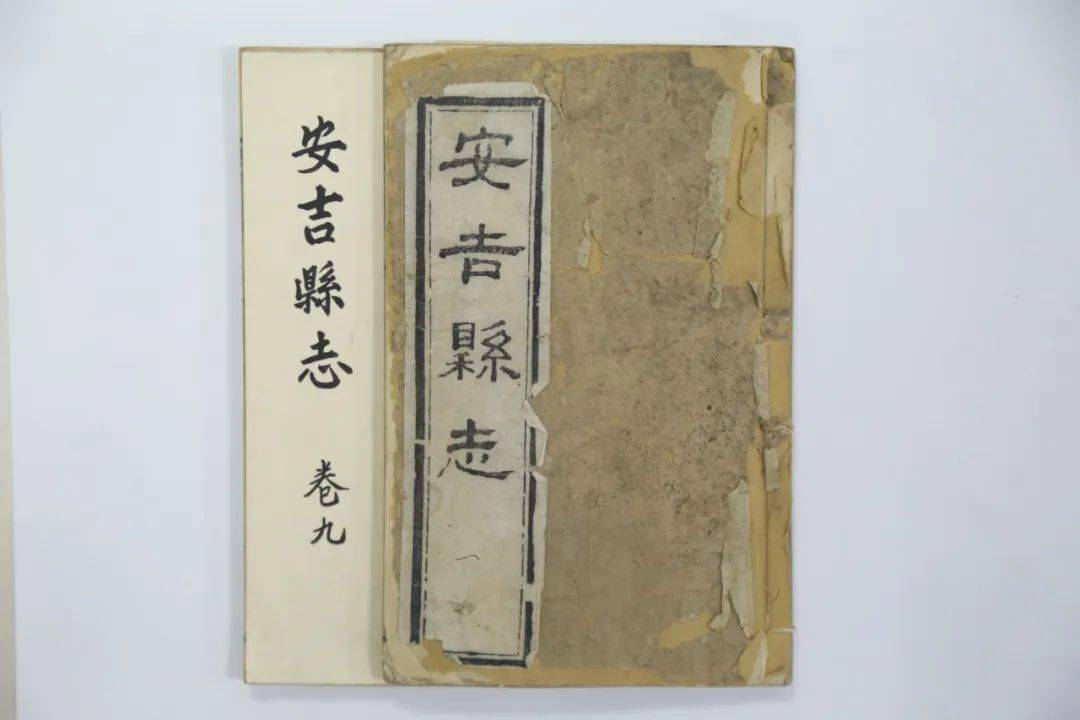 安吉縣志
卷九
安吉縣志